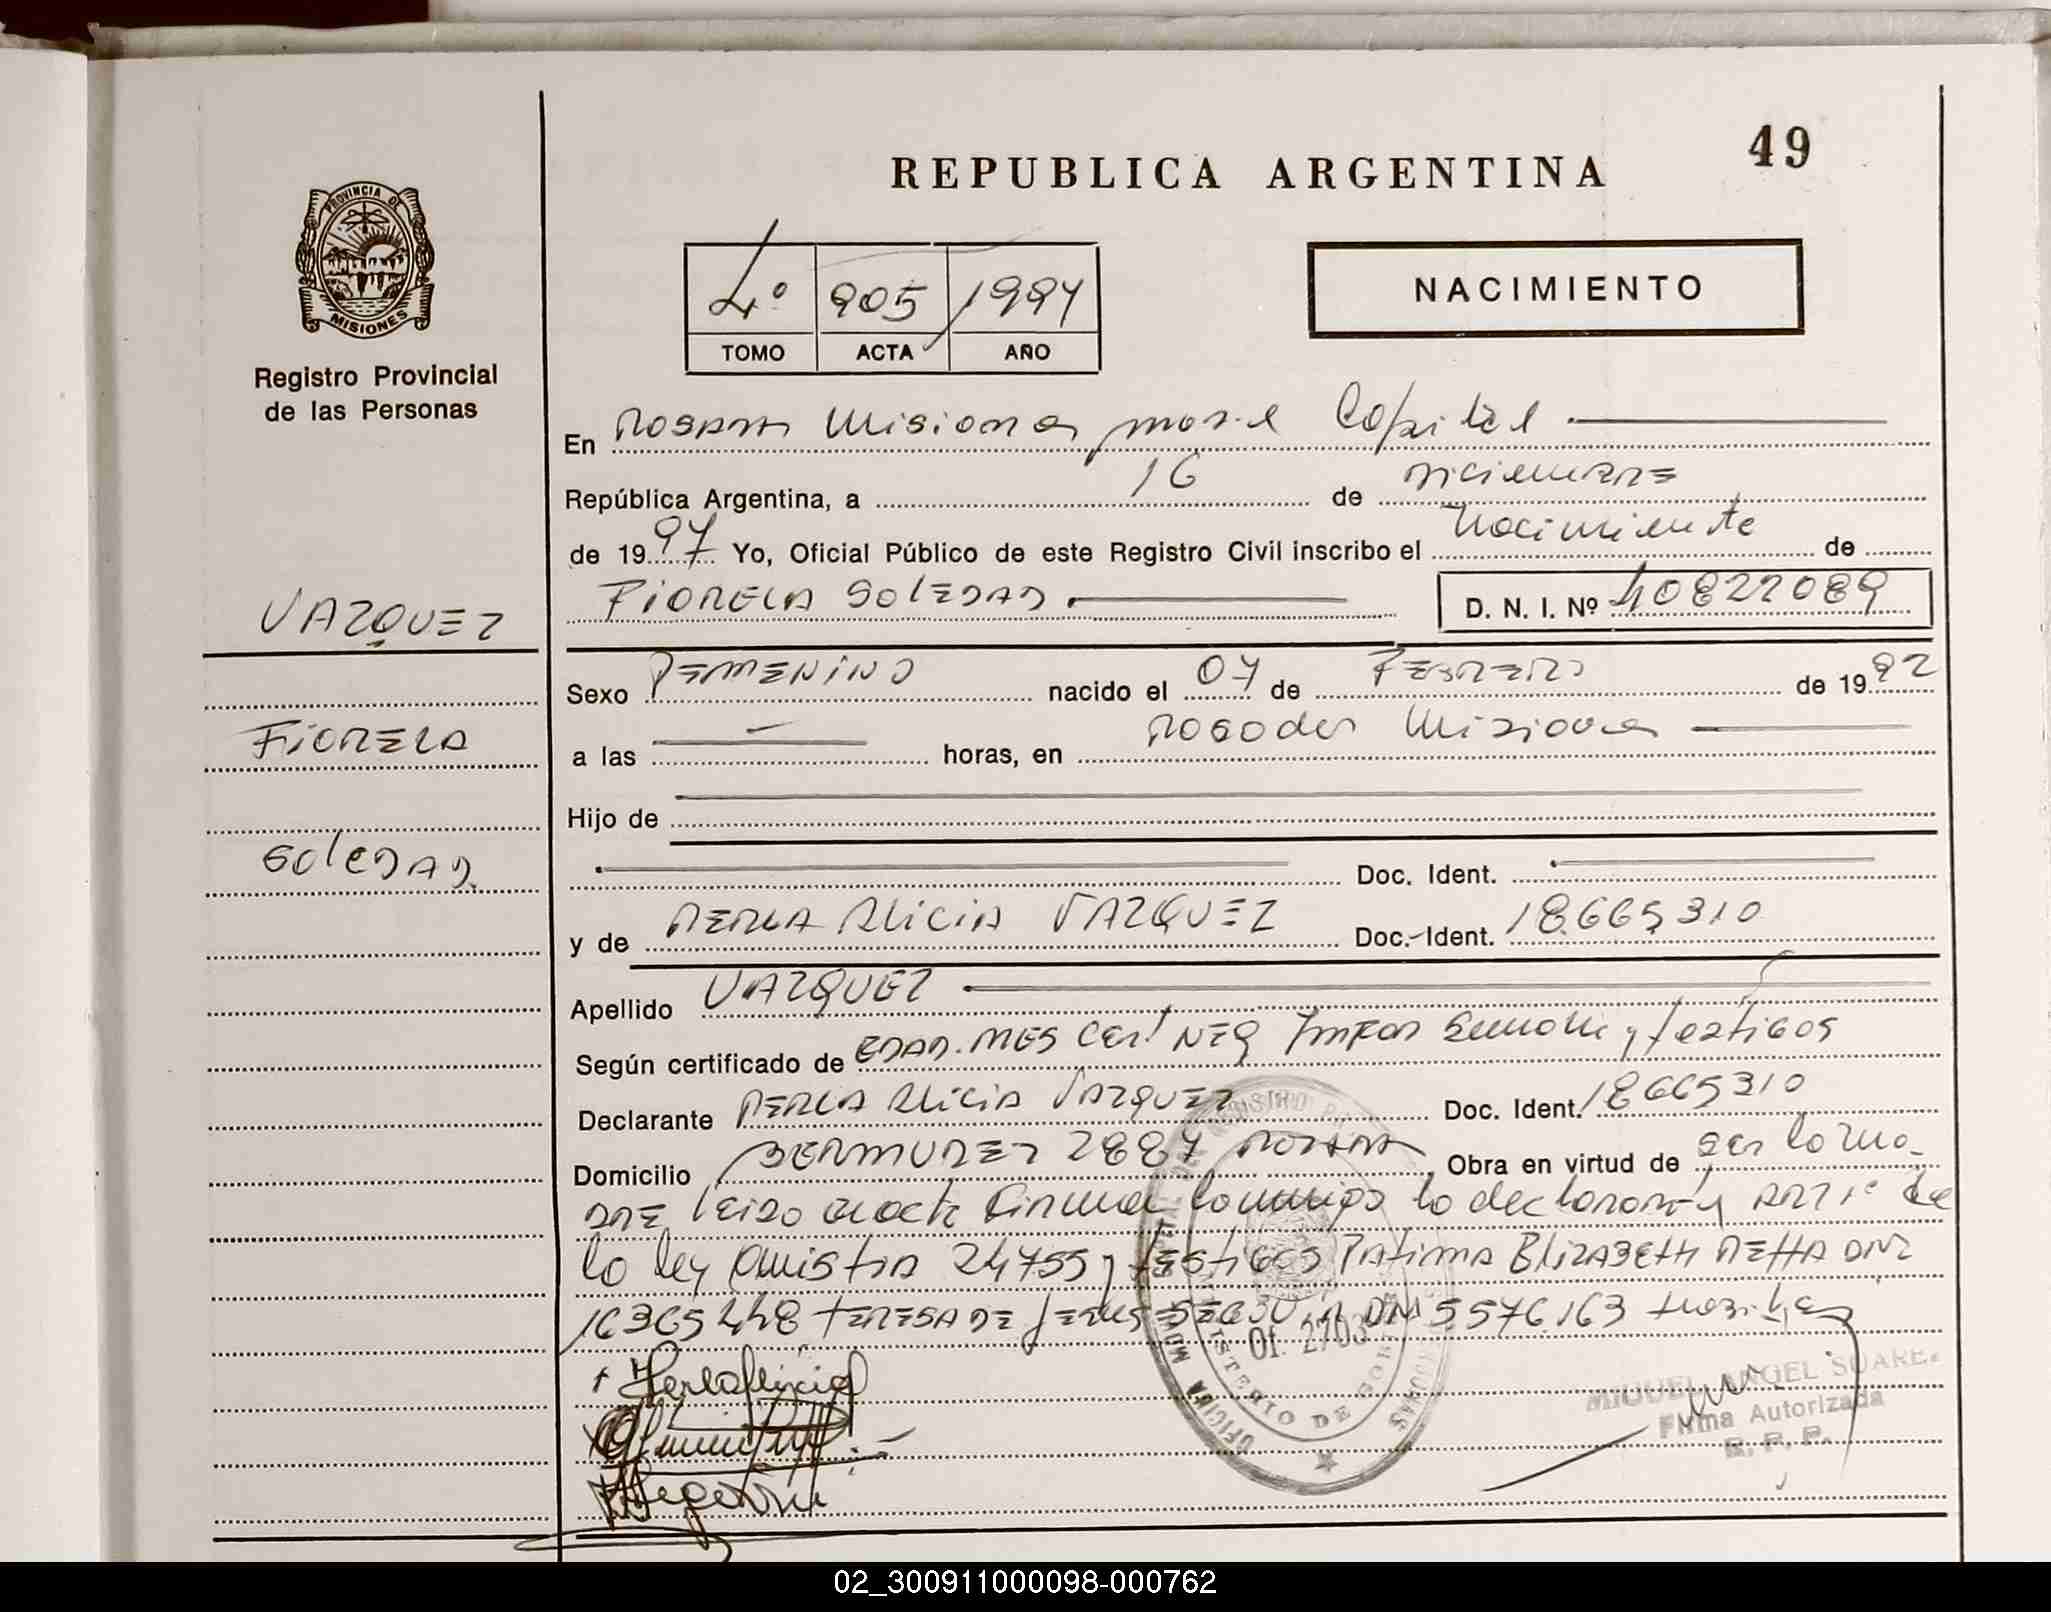 49
REPUBLICA ARGENTINA
PROVINCIA DE
MISIONES
Registro Provincial
de las Personas
4º 905 1997
TOMO ACTA AÑO
NACIMIENTO
En Posadas Misiones Capital
República Argentina, a 16 de Diciembre
de 1997 Yo, Oficial Público de este Registro Civil inscribo el Nacimiento de
VAZQUEZ
FIORELA SOLEDAD D. N. I. Nº 40822089
Sexo FEMENINO nacido el 07 de FEBRERO de 1992
FIORELA
a las horas, en Posadas Misiones
Hijo de
SOLEDAD
Doc. Ident.
y de PERLA ALICIA VAZQUEZ Doc. Ident. 18.665.310
Apellido VAZQUEZ
Según certificado de EDAD. MES Cert NEG y testigos
Declarante PERLA ALICIA VAZQUEZ Doc. Ident. 18665310
Domicilio BERMUDEZ 2887 Obra en virtud de ser la ma-
DRE leida el acta firma conmigo la declarante y ART 1º de
la ley Amistia 24755 y testigos FATIMA ELIZABETH DNI
16365448 TERESA DE JESUS DNI 5576.163
Of. 2703
MIGUEL ANGEL SUAREZ
Firma Autorizada
R. P. P.
02_300911000098-000762